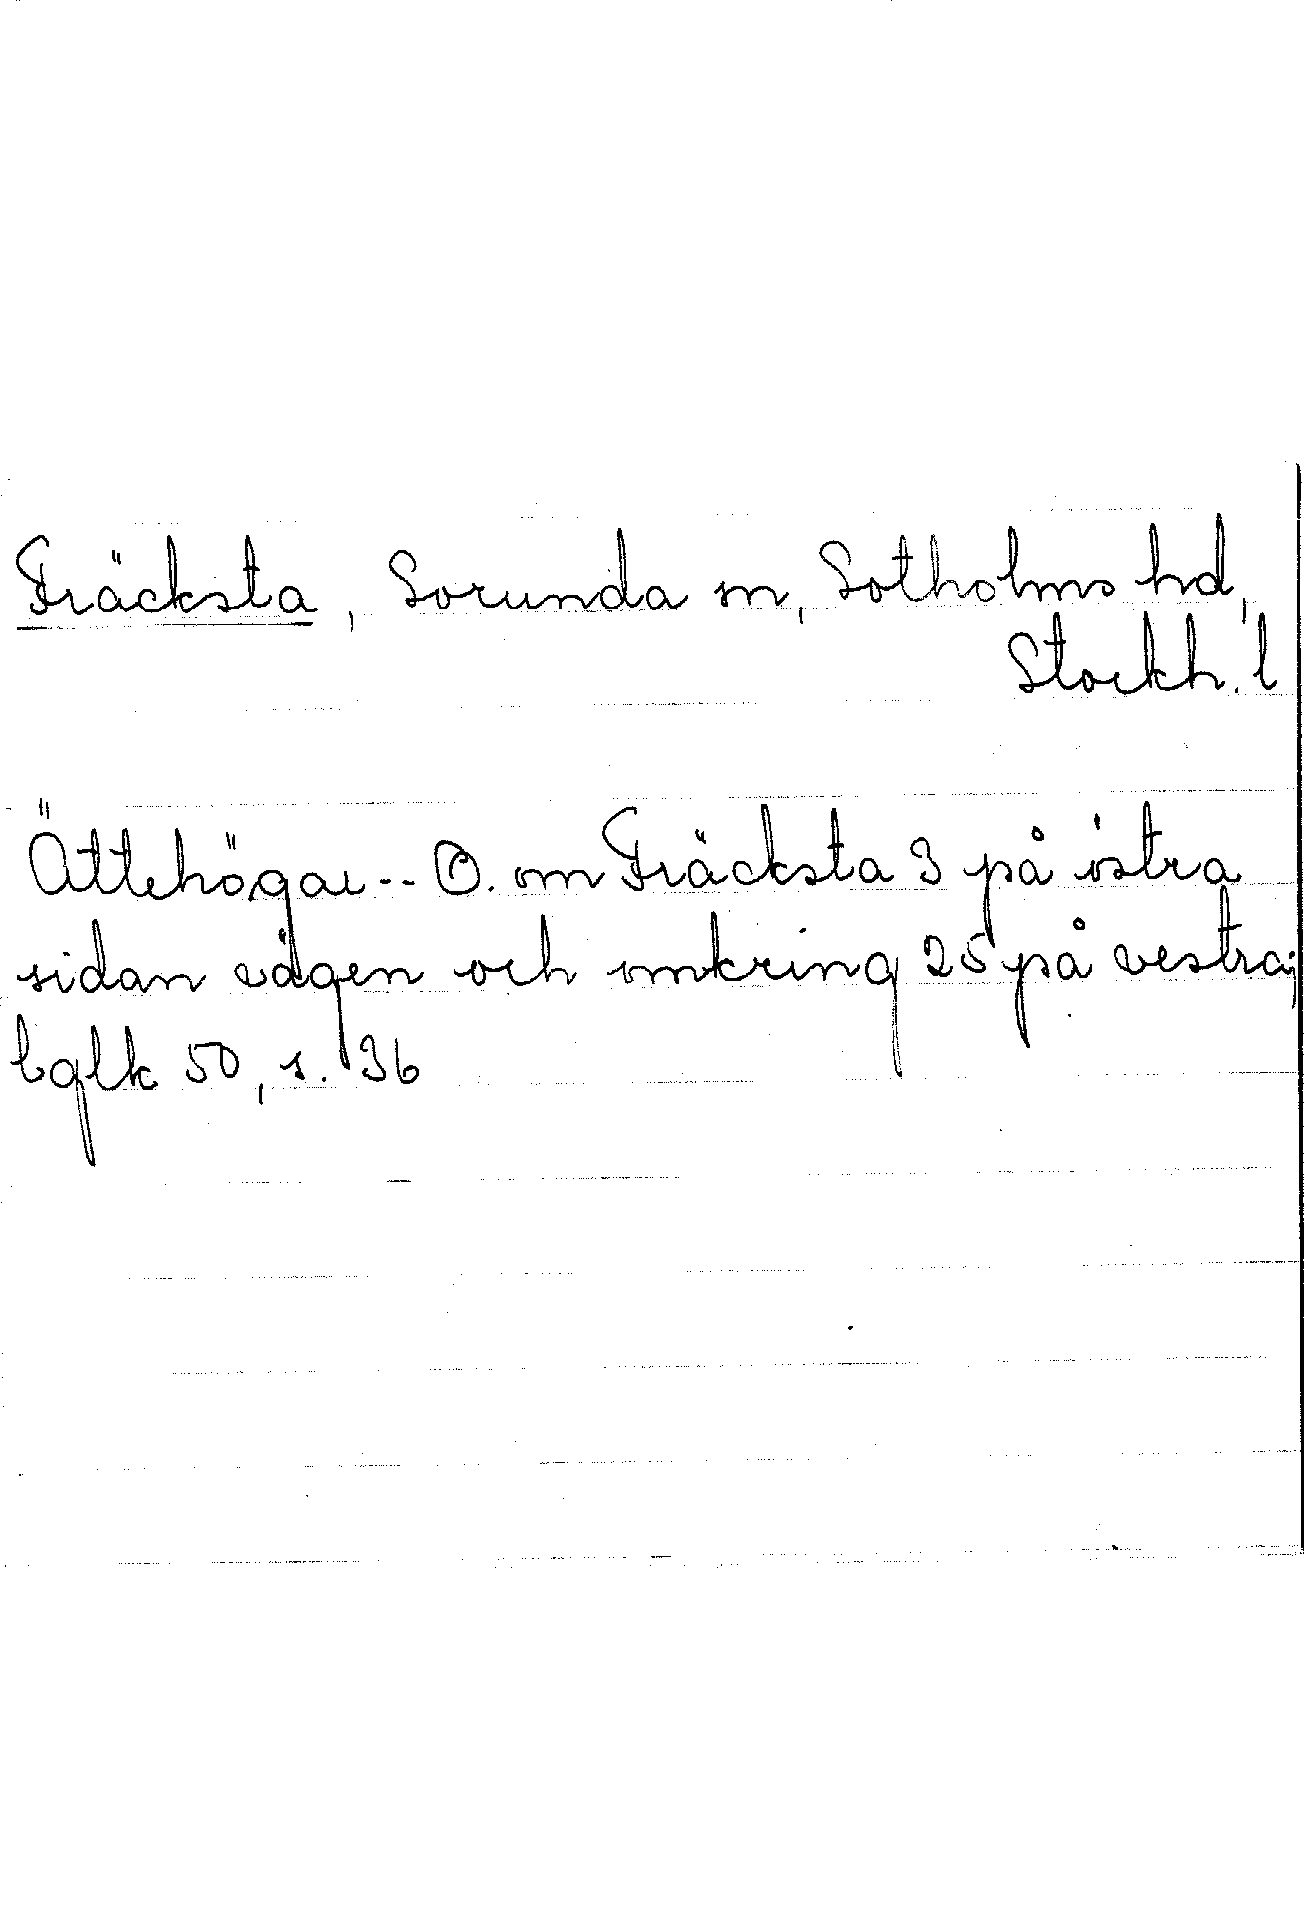 Fräcksta, Sorunda sn, Sotholms hd,
Stockh. l
Ättehögar -- O. om Fräcksta 3 på östra
sidan vägen och omkring 25 på vestra;
bglk 50, s. 36